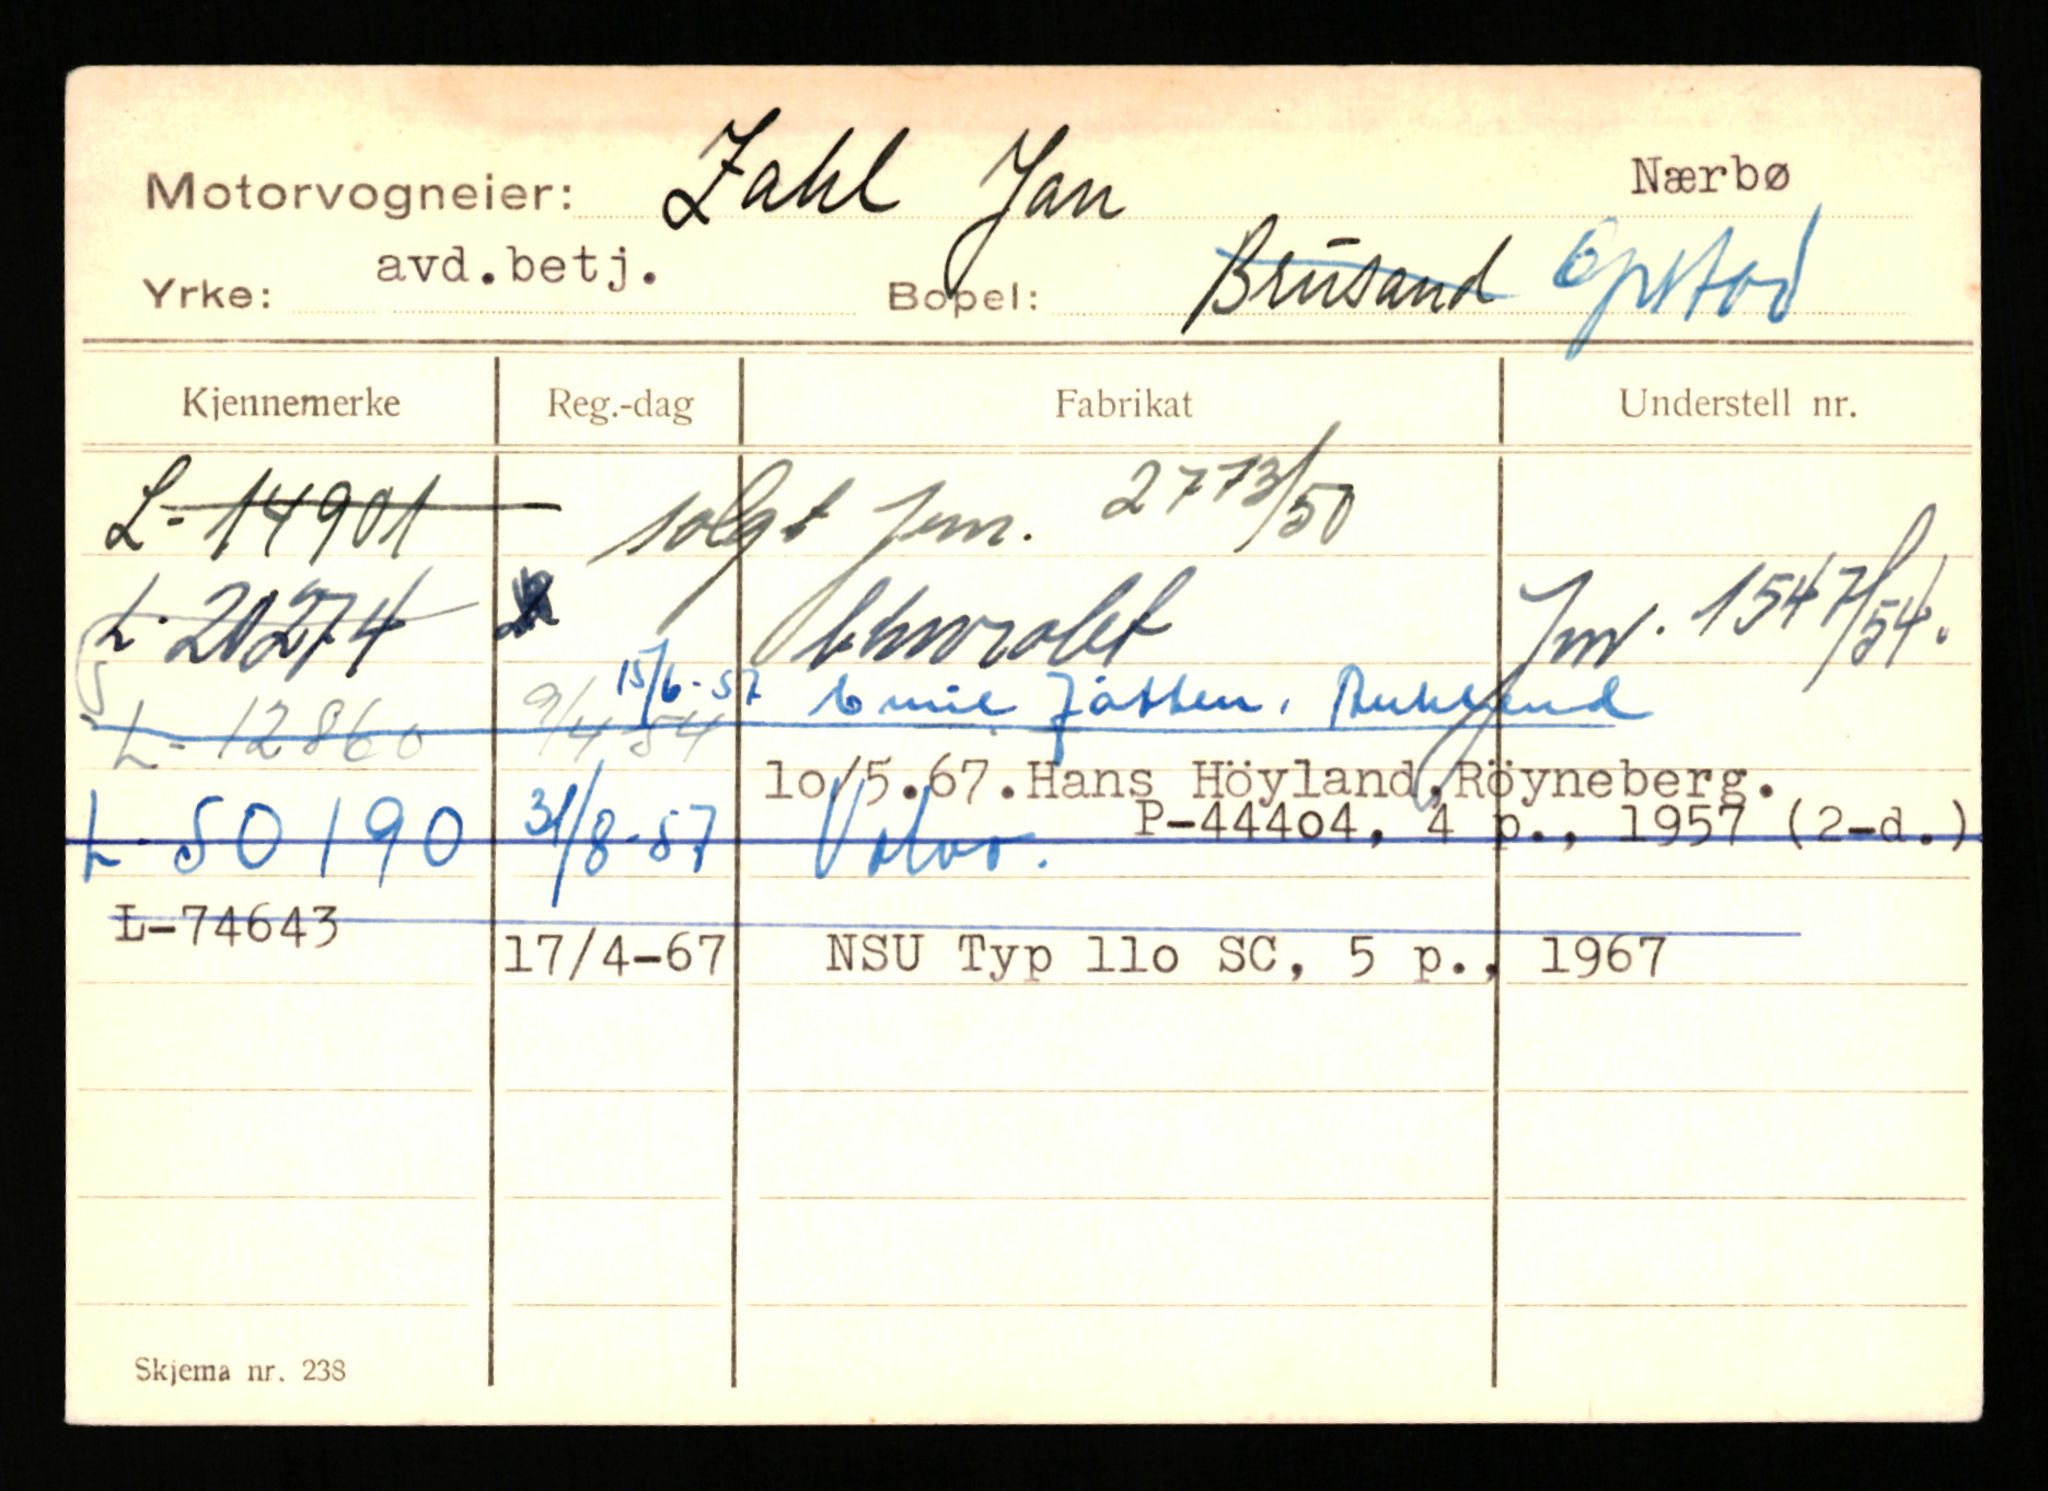 Motorvogneier: Zahl Jan Nærbø
Yrke: avd.betj. Bopel: Brusand Opstad
Kjennemerke Reg.-dag Fabrikat Understell nr.
L-14901 solgt 2773/50
L-20274 Chevrolet Jnr. 1547/54.
15/6-57 Emil Jåtten,
L-12860 9/4-54
lo/5.67.Hans Höyland,Röyneberg.
P-444o4, 4 p., 1957 (2-d.)
L-50190 31/8-57 Volvo.
L-74643
17/4-67 NSU Typ llo SC, 5 p., 1967
Skjema nr. 238